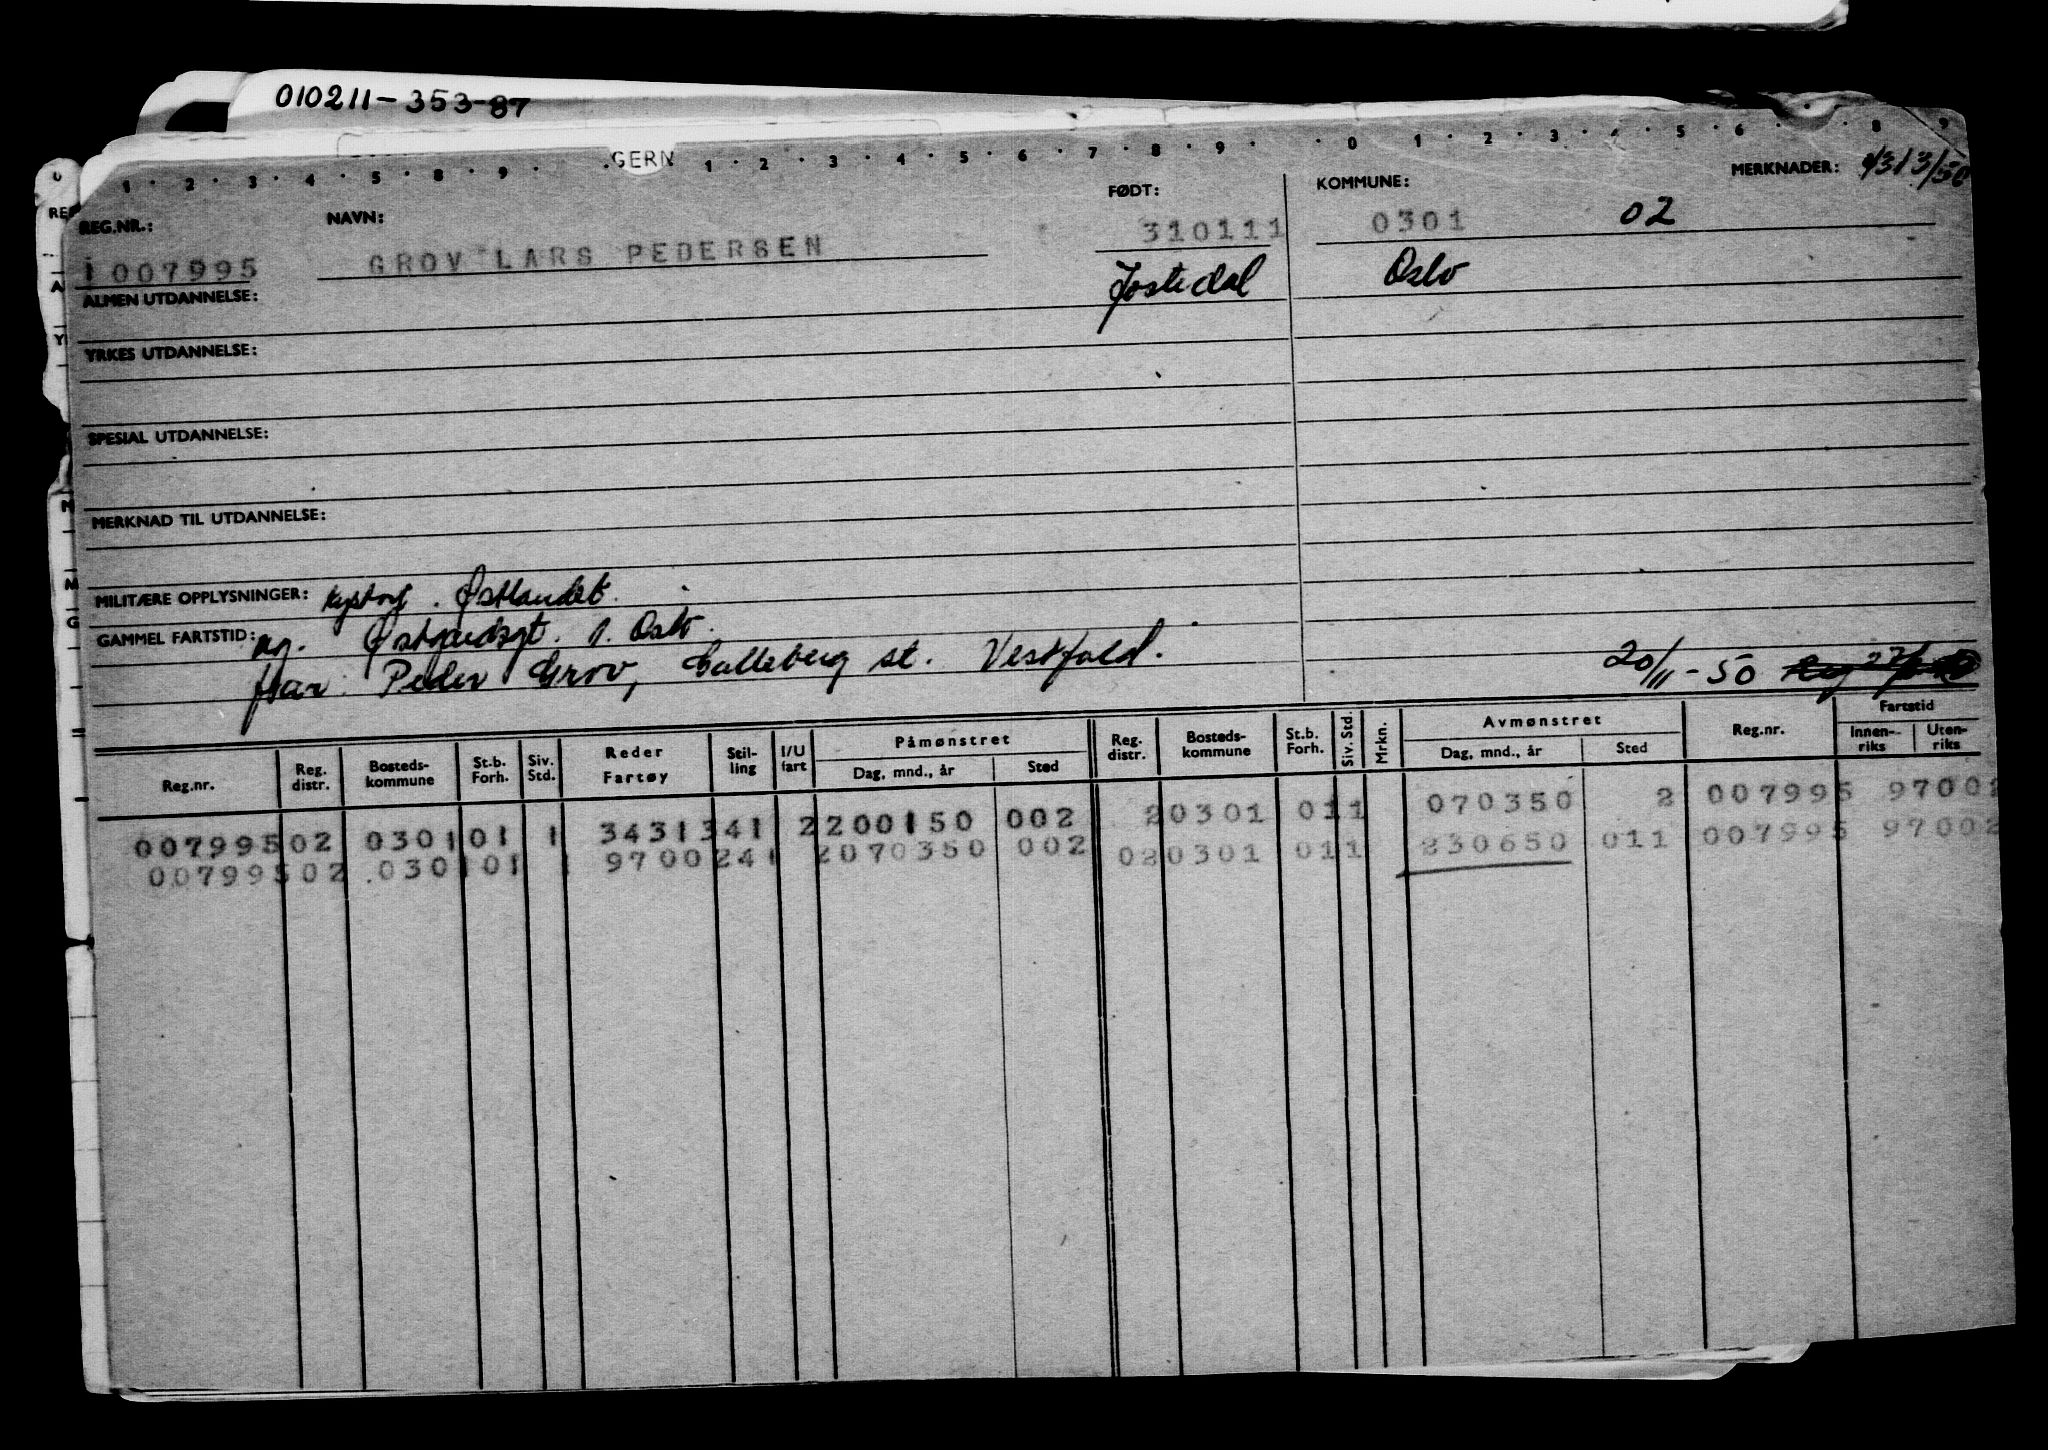 010211-353-87
GERN
1 · 2 · 3 · 4 · 5 · 8 · 9 · 1 · 2 · 3 · 4 · 5 · 6 · 7 · 8 · 9 · · 0 · 1 · 2 · 3 · 4 · 5 · 6 · · 8 · 9
REG.NR.: NAVN: FØDT: KOMMUNE: MERKNADER:
1007995 GROV LARS PEDERSEN 310111 0301 02
ALMEN UTDANNELSE: Jostedal Oslo
YRKES UTDANNELSE:
SPESIAL UTDANNELSE:
MERKNAD TIL UTDANNELSE:
MILITÆRE OPPLYSNINGER: Østlandet.
GAMMEL FARTSTID: 1. Oslo.
Far: Peder Grov, Galleberg st. Vestfold. 20/11-50
Reg.nr. Reg. distr. Bosteds-kommune St.b. Forh. Siv. Std. Reder Fartøy Stil-ling I/U fart Påmønstret Dag, mnd., år Sted Reg. distr. Bosteds-kommune St.b. Forh. Siv. Std. Mrkn. Avmønstret Dag, mnd., år Sted Reg.nr. Fartstid Innen-riks Uten-riks
007995 02 0301 01 1 3431341 2 200150 002 2 0301 01 1 070350 2 007995 97002
007995 02 0301 01 9700241 2 070350 002 02 0301 01 1 230650 011 007995 97002